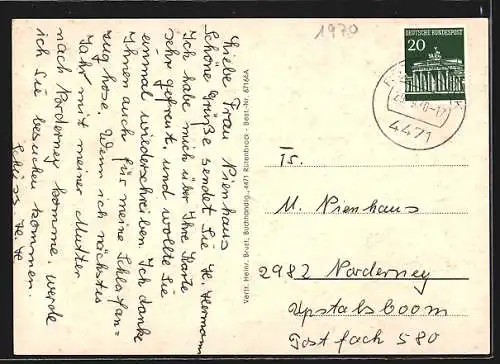 1970
DEUTSCHE BUNDESPOST
20
4471
Liebe Frau Nienhaus
Schöne Grüße sendet Sie H. Hermann
Ich habe mich über Ihre Karte
sehr gefreut, und wollte Sie
einmal wiederschreiben. Ich danke
Ihnen auch für meine Schlafan=
zug hose. Wenn ich nächstes
Jahr mit meiner Mutter
nach Norderney komme, werde
ich Sie besuchen kommen.
H. H.
Verlt. Heinr. Brust, Buchhandlg., 4471 Rütenbrock - Best.-Nr.
Fr.
M. Nienhaus
2982 Norderney
Upstalsboom
Postfach 580